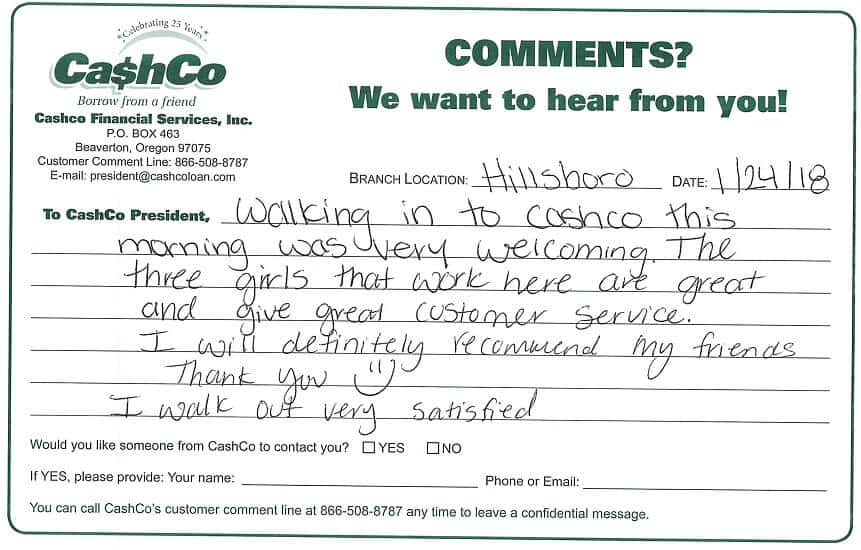 Celebrating 25 Years
Ca$hCo
Borrow from a friend
Cashco Financial Services, Inc.
P.O. BOX 463
Beaverton, Oregon 97075
Customer Comment Line: 866-508-8787
E-mail: president@cashcoloan.com
COMMENTS?
We want to hear from you!
BRANCH LOCATION: Hillsboro DATE: 1/24/18
To CashCo President, Walking in to cashco this
morning was very welcoming. The
three girls that work here are great
and give great customer service.
I will definitely recommend my friends
Thank you
I walk out very satisfied
Would you like someone from CashCo to contact you? ☐ YES ☐ NO
If YES, please provide: Your name: Phone or Email:
You can call CashCo's customer comment line at 866-508-8787 any time to leave a confidential message.